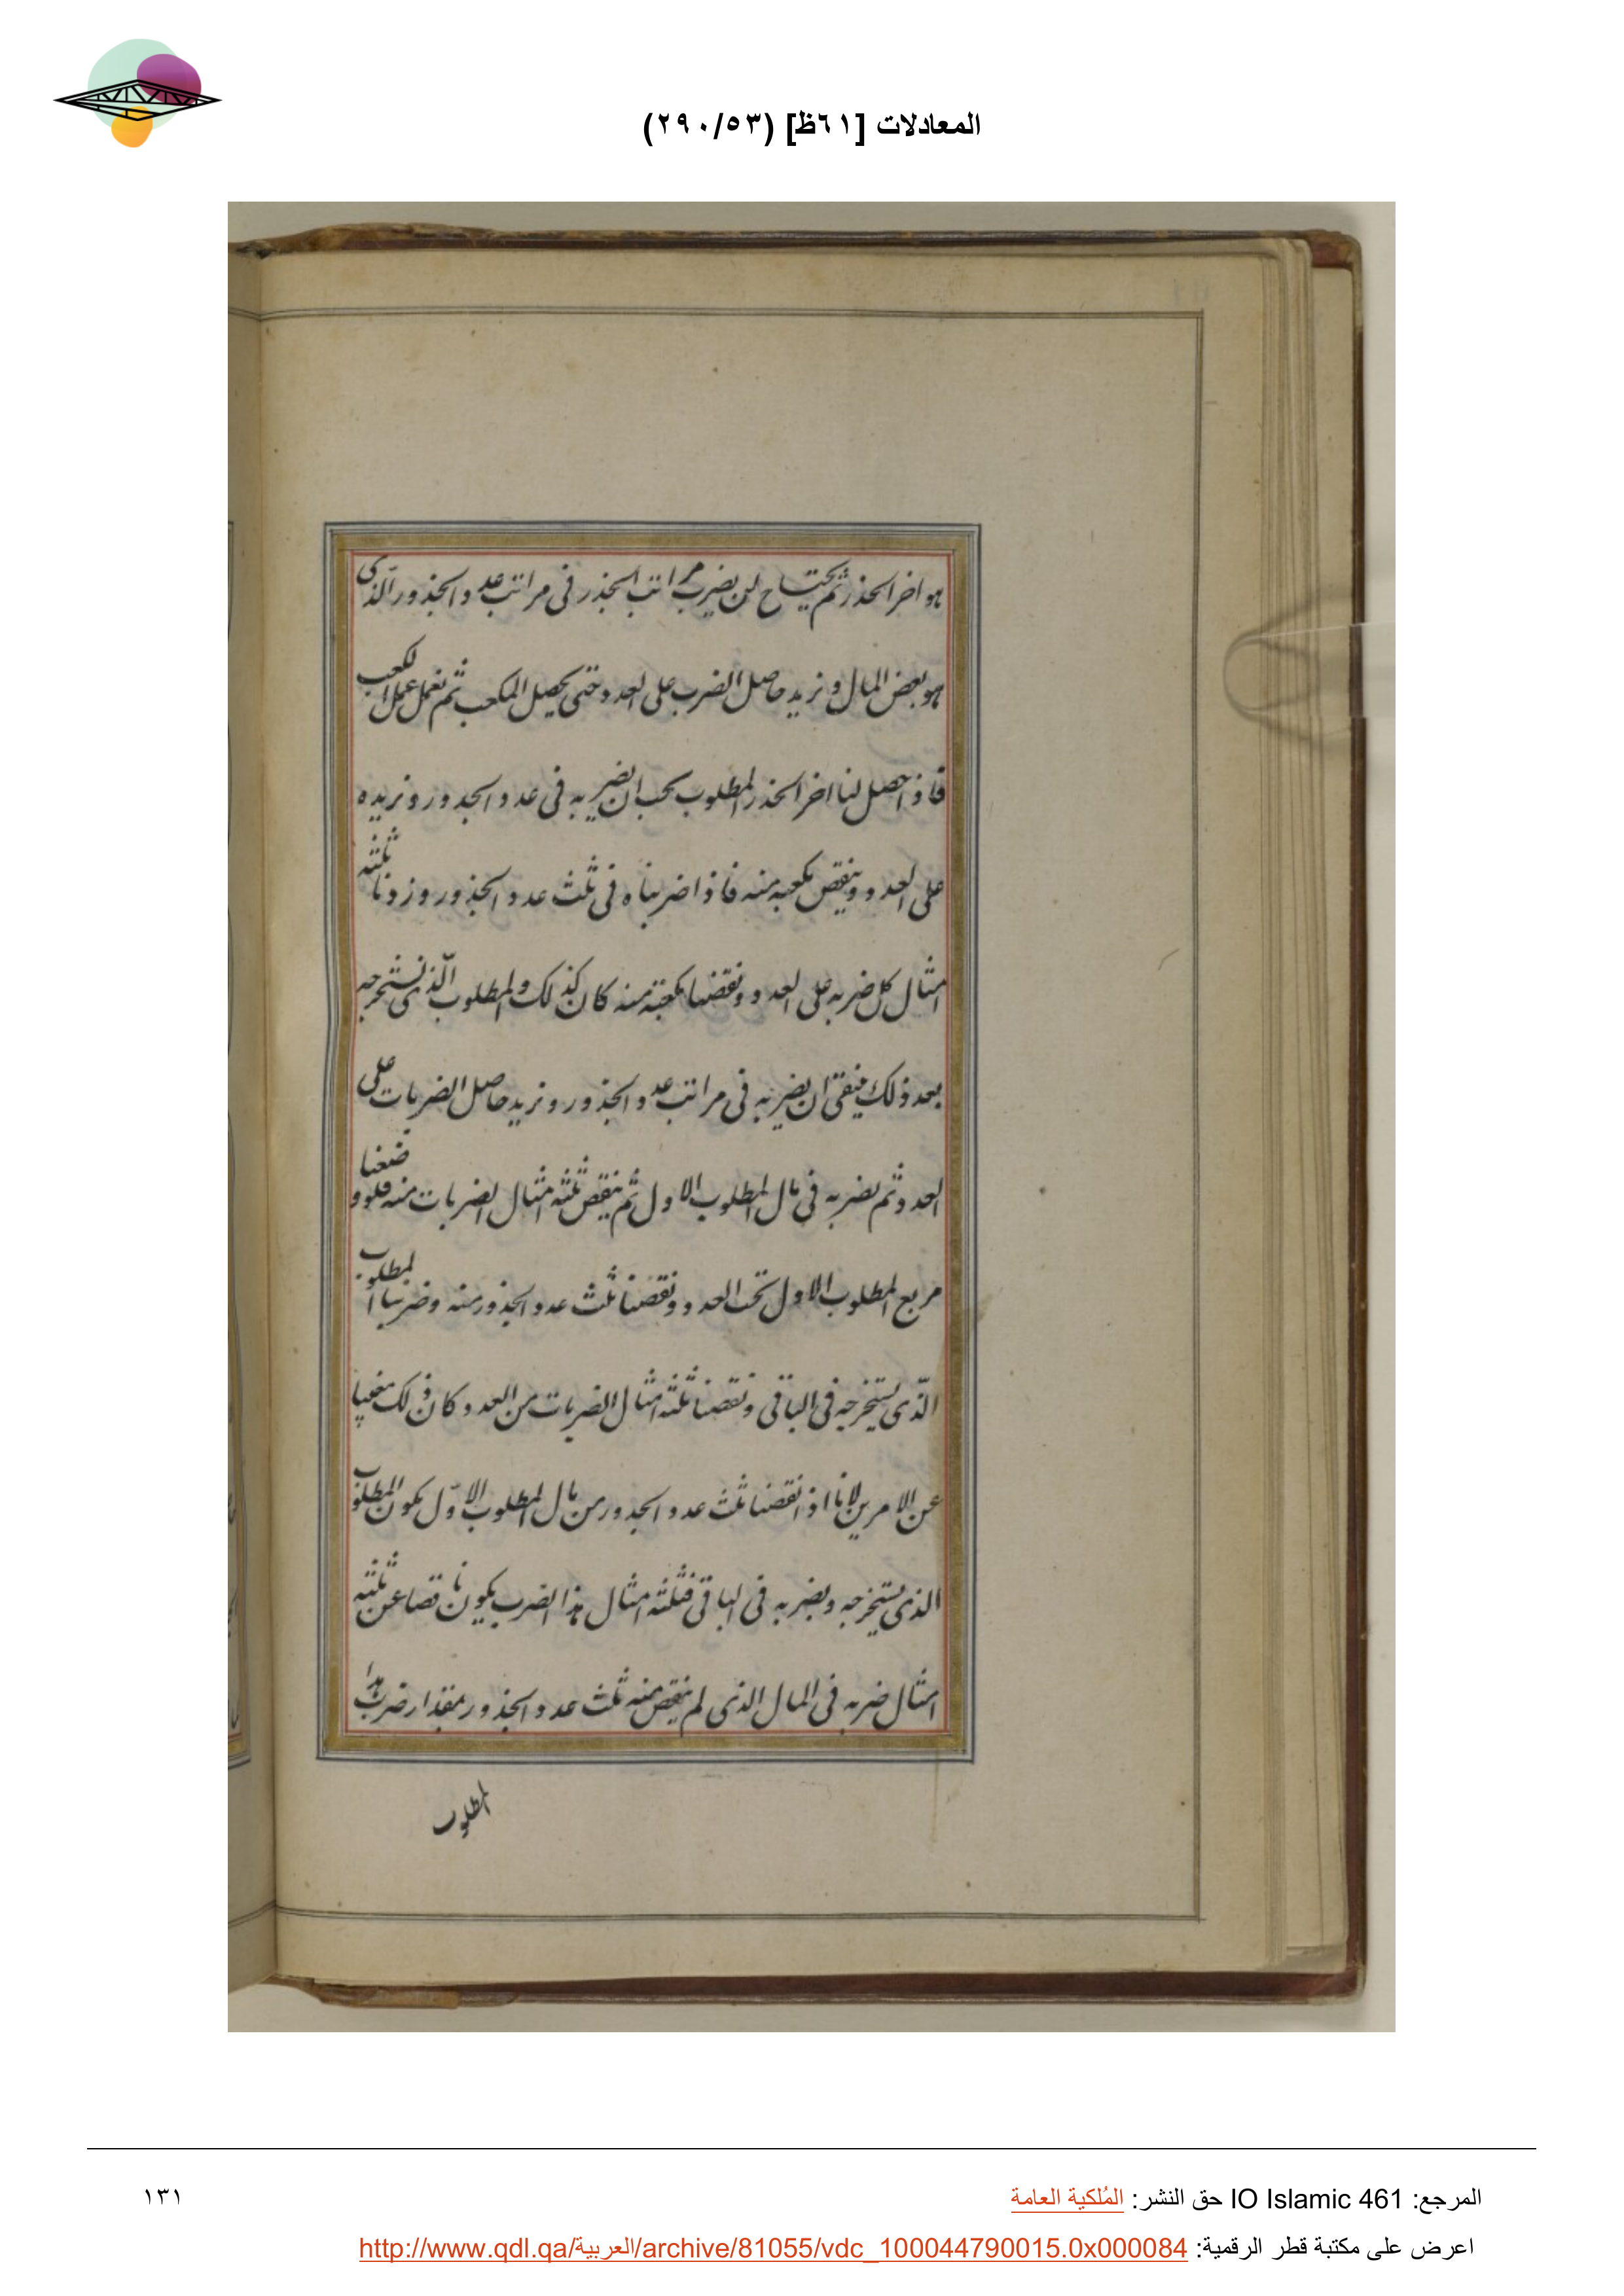 المعادلات [٦١ظ] (٢٩٠/٥٣)
هو اخر الجذر ثم يحتاج ان يضرب مراتب الجذر فى مراتب عدد الجذور الّذى
هو بعض المال و نزيد حاصل الضرب على العدد حتى يحصل المكعب ثم نعمل عمل الكعب
فاذا حصل لنا اخر الجذر المطلوب يجب ان نضربه فى عدد الجذور و نزيده
على العدد و ينقص مكعبه منه فاذا ضربناه فى ثلث عدد الجذور و زدنا ثلثة
امثال كل ضربه على العدد و نقصنا مكعبه منه كان كذلك و المطلوب الّذى نستخرجه
بعد ذلك ان نضربه فى مراتب عدد الجذور و نزيد حاصل الضربات على
العدد ثم نضربه فى مال المطلوب الاول ثم ينقص ثلثة امثال الضربات منه فلو وضعنا
مربع المطلوب الاول تحت العدد و نقصنا ثلث عدد الجذور منه و ضربنا المطلوب
الّذى يستخرجه فى الباقى و نقصنا ثلثة امثال الضربات من العدد كان ذلك مغنيا
عن الامرين لانا اذا نقصنا ثلث عدد الجذور من مال المطلوب الاوّل يكون المطلوب
الذى يستخرجه و يضربه فى الباقى فثلثة امثال هذا الضرب يكون ناقصا عن ثلثة
امثال ضربه فى المال الذى لم ينقص منه ثلث عدد الجذور بمقدار ضرب هذا
المطلوب
المرجع: IO Islamic 461 حق النشر: المُلكية العامة
١٣١
اعرض على مكتبة قطر الرقمية: http://www.qdl.qa/العربية/archive/81055/vdc_100044790015.0x000084